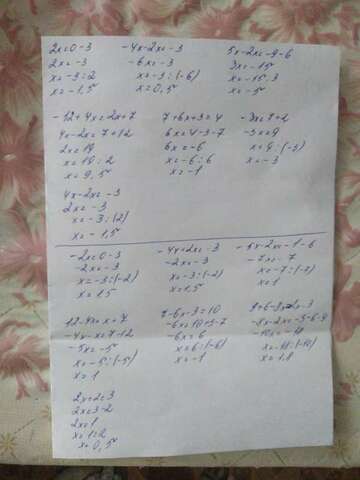 2x=0-3
2x=-3
x=-3:2
x=-1,5
-4x-2x=-3
-6x=-3
x=-3:(-6)
x=0,5
5x-2x=-9-6
3x=-15
x=-15:3
x=-5
-12+4x=2x+7
4x-2x=7+12
2x=19
x=19:2
x=9,5
7+6x+3=4
6x=4-3-7
6x=-6
x=-6:6
x=-1
-3x=7+2
-3=9
x=9:(-3)
x=-3
4x-2x=-3
2x=-3
x=-3:(2)
x=-1,5
-2x=0-3
-2x=-3
x=-3:(-2)
x=1,5
-4x+2x=-3
-2x=-3
x=-3:(-2)
x=1,5
-5x-2x=-1-6
-7x=-7
x=-7:(-7)
x=1
12-4x=x+7
-4x-x=7-12
-5x=-5
x=-5:(-5)
x=1
7-6x-3=10
-6x=10+3-7
-6x=6
x=6:(-6)
x=-1
-8x-2x=-3-6-9
x=1,8
2x+2=3
2x=3-2
2x=1
x=1:2
x=0,5